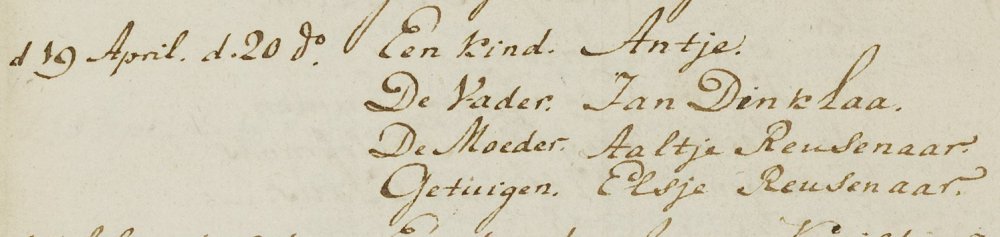 d 19 April. d. 20 do. Een kind. Antje.
De Vader. Jan Dinklaa.
De Moeder. Aaltje Reusenaar.
Getuigen. Elsje Reusenaar.